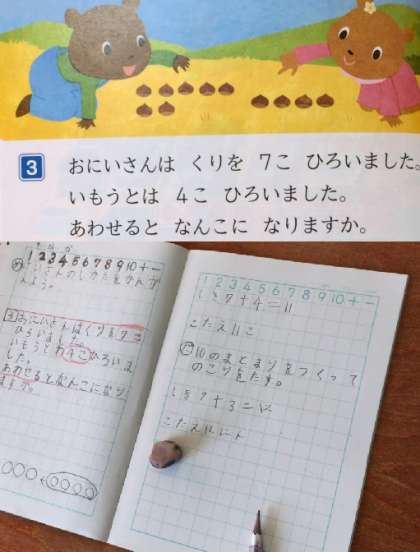 3 おにいさんは くりを 7こ ひろいました。
いもうとは 4こ ひろいました。
あわせると なんこに なりますか。
1 2 3 4 5 6 7 8 9 10 + −
3 おにいさんはくりを7こ
ひろいました。
いもうとは4こひろいま
した。
あわせるとなんこになり
ますか。
1 2 3 4 5 6 7 8 9 10 + −
しき 7+4=11
こたえ 11こ
10のまとまりをつくって
のこりをたす。
しき 9+3=12
こたえ